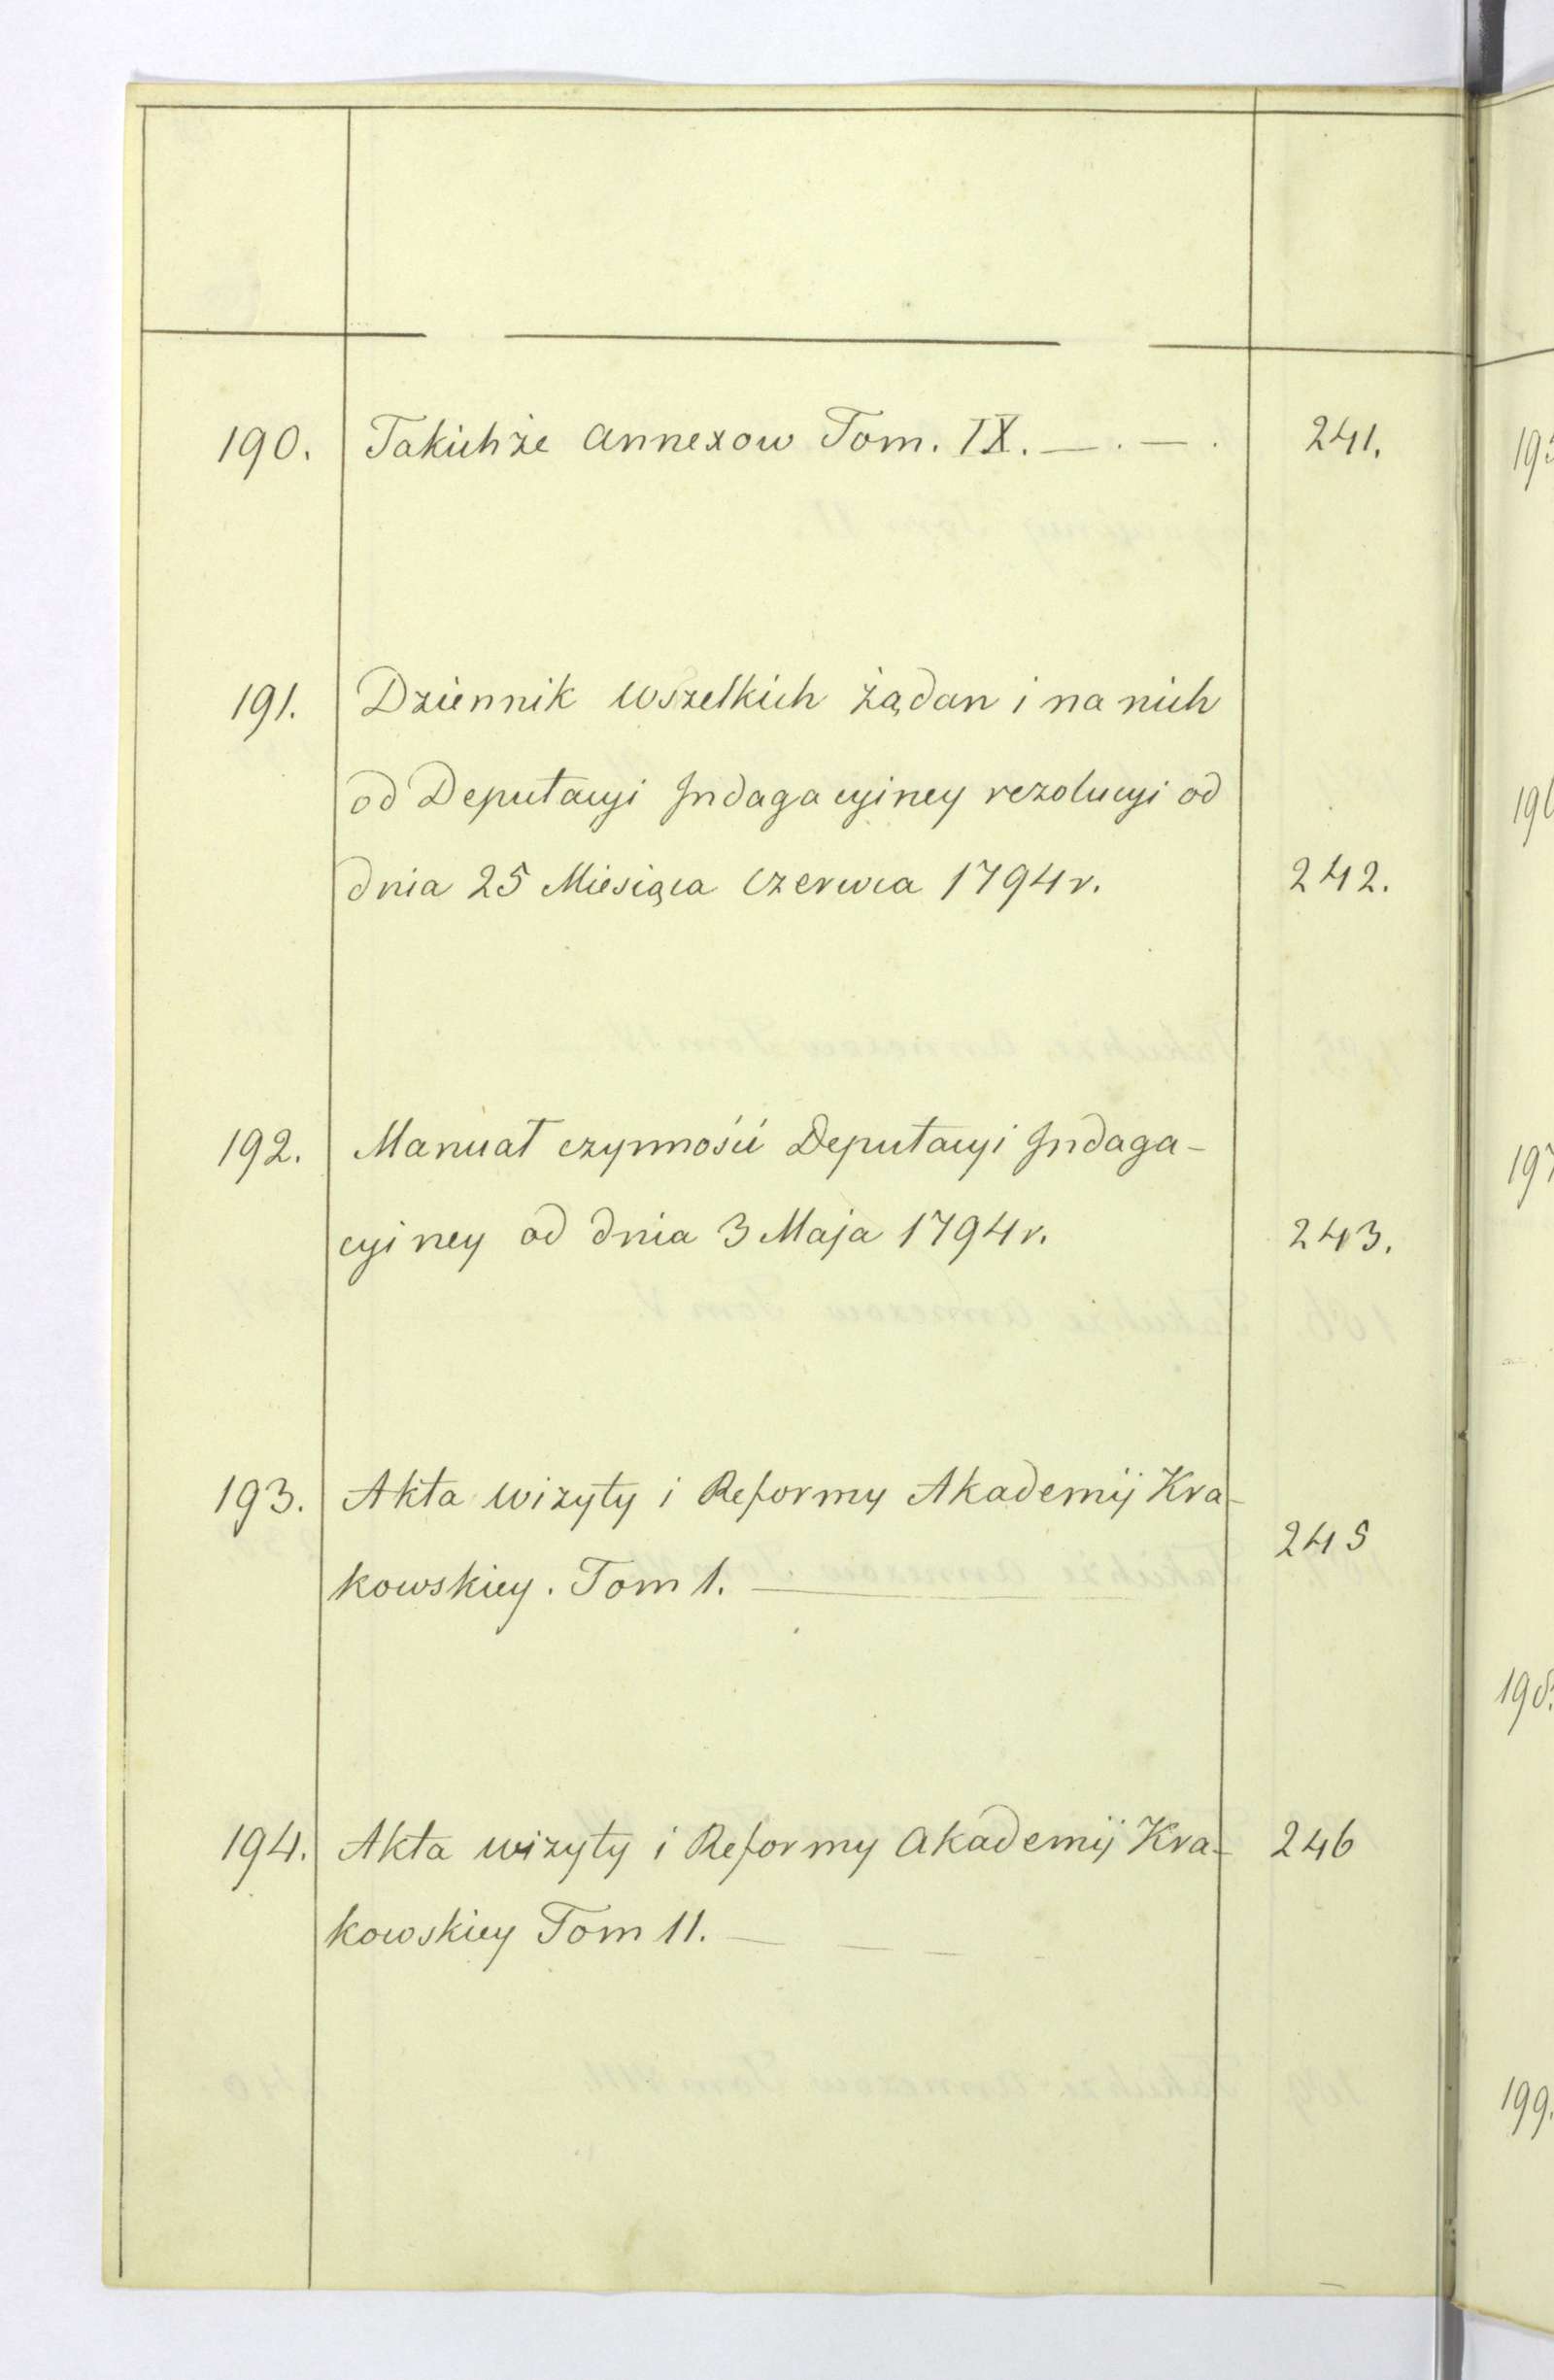 190. Takichże annexow Tom. IX. —.—. 241.
191. Dziennik wszelkich żądan i na nich
od Deputacyi Indagacyiney rezolucyi od
dnia 25 Miesiąca Czerwca 1794 r. 242.
192. Manuał czynności Deputacyi Indaga-
cyiney od dnia 3 Maja 1794 r. 243.
193. Akta wizyty i Reformy Akademij Kra-
245
kowskiey. Tom 1. —
194. Akta wizyty i Reformy Akademij Kra- 246
kowskiey Tom 11. — — —
197
198.
199.